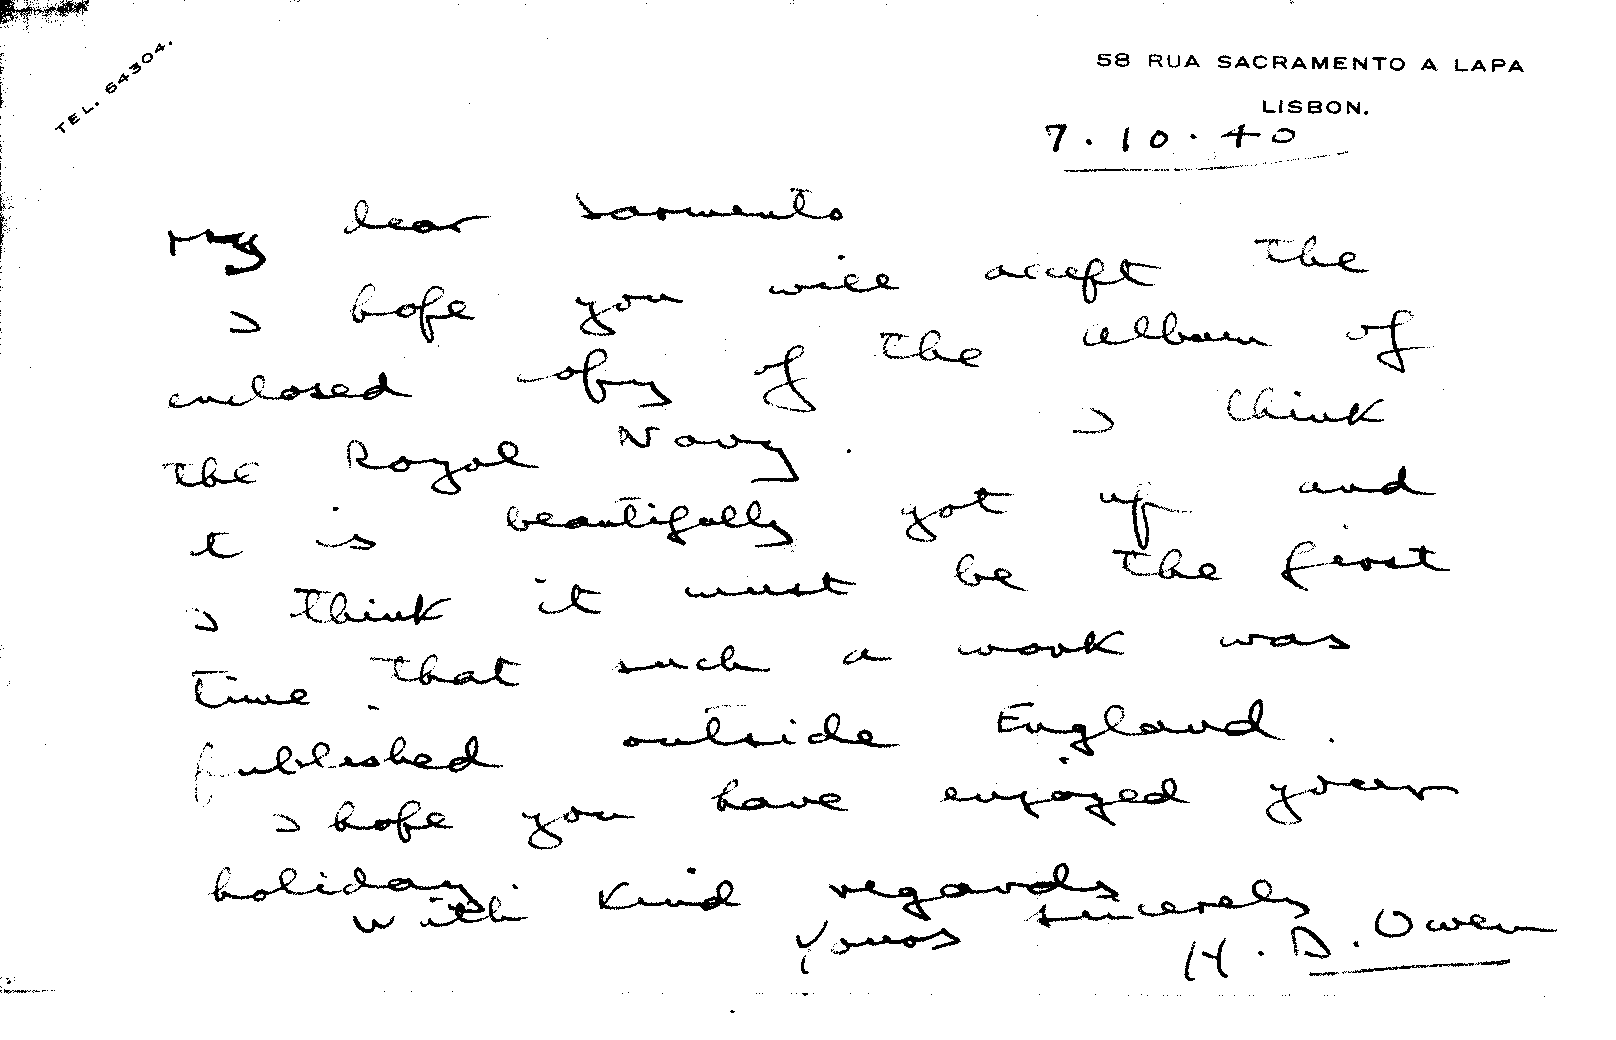 TEL. 64304.
58 RUA SACRAMENTO A LAPA
LISBON.
7.10.40
My dear Sarmento
I hope you will accept the
enclosed copy of the album of
the Royal Navy. I think
it is beautifully got up and
I think it must be the first
time that such a work was
published outside England.
I hope you have enjoyed your
holiday.
With kind regards
Yours sincerely
H. D. Owen